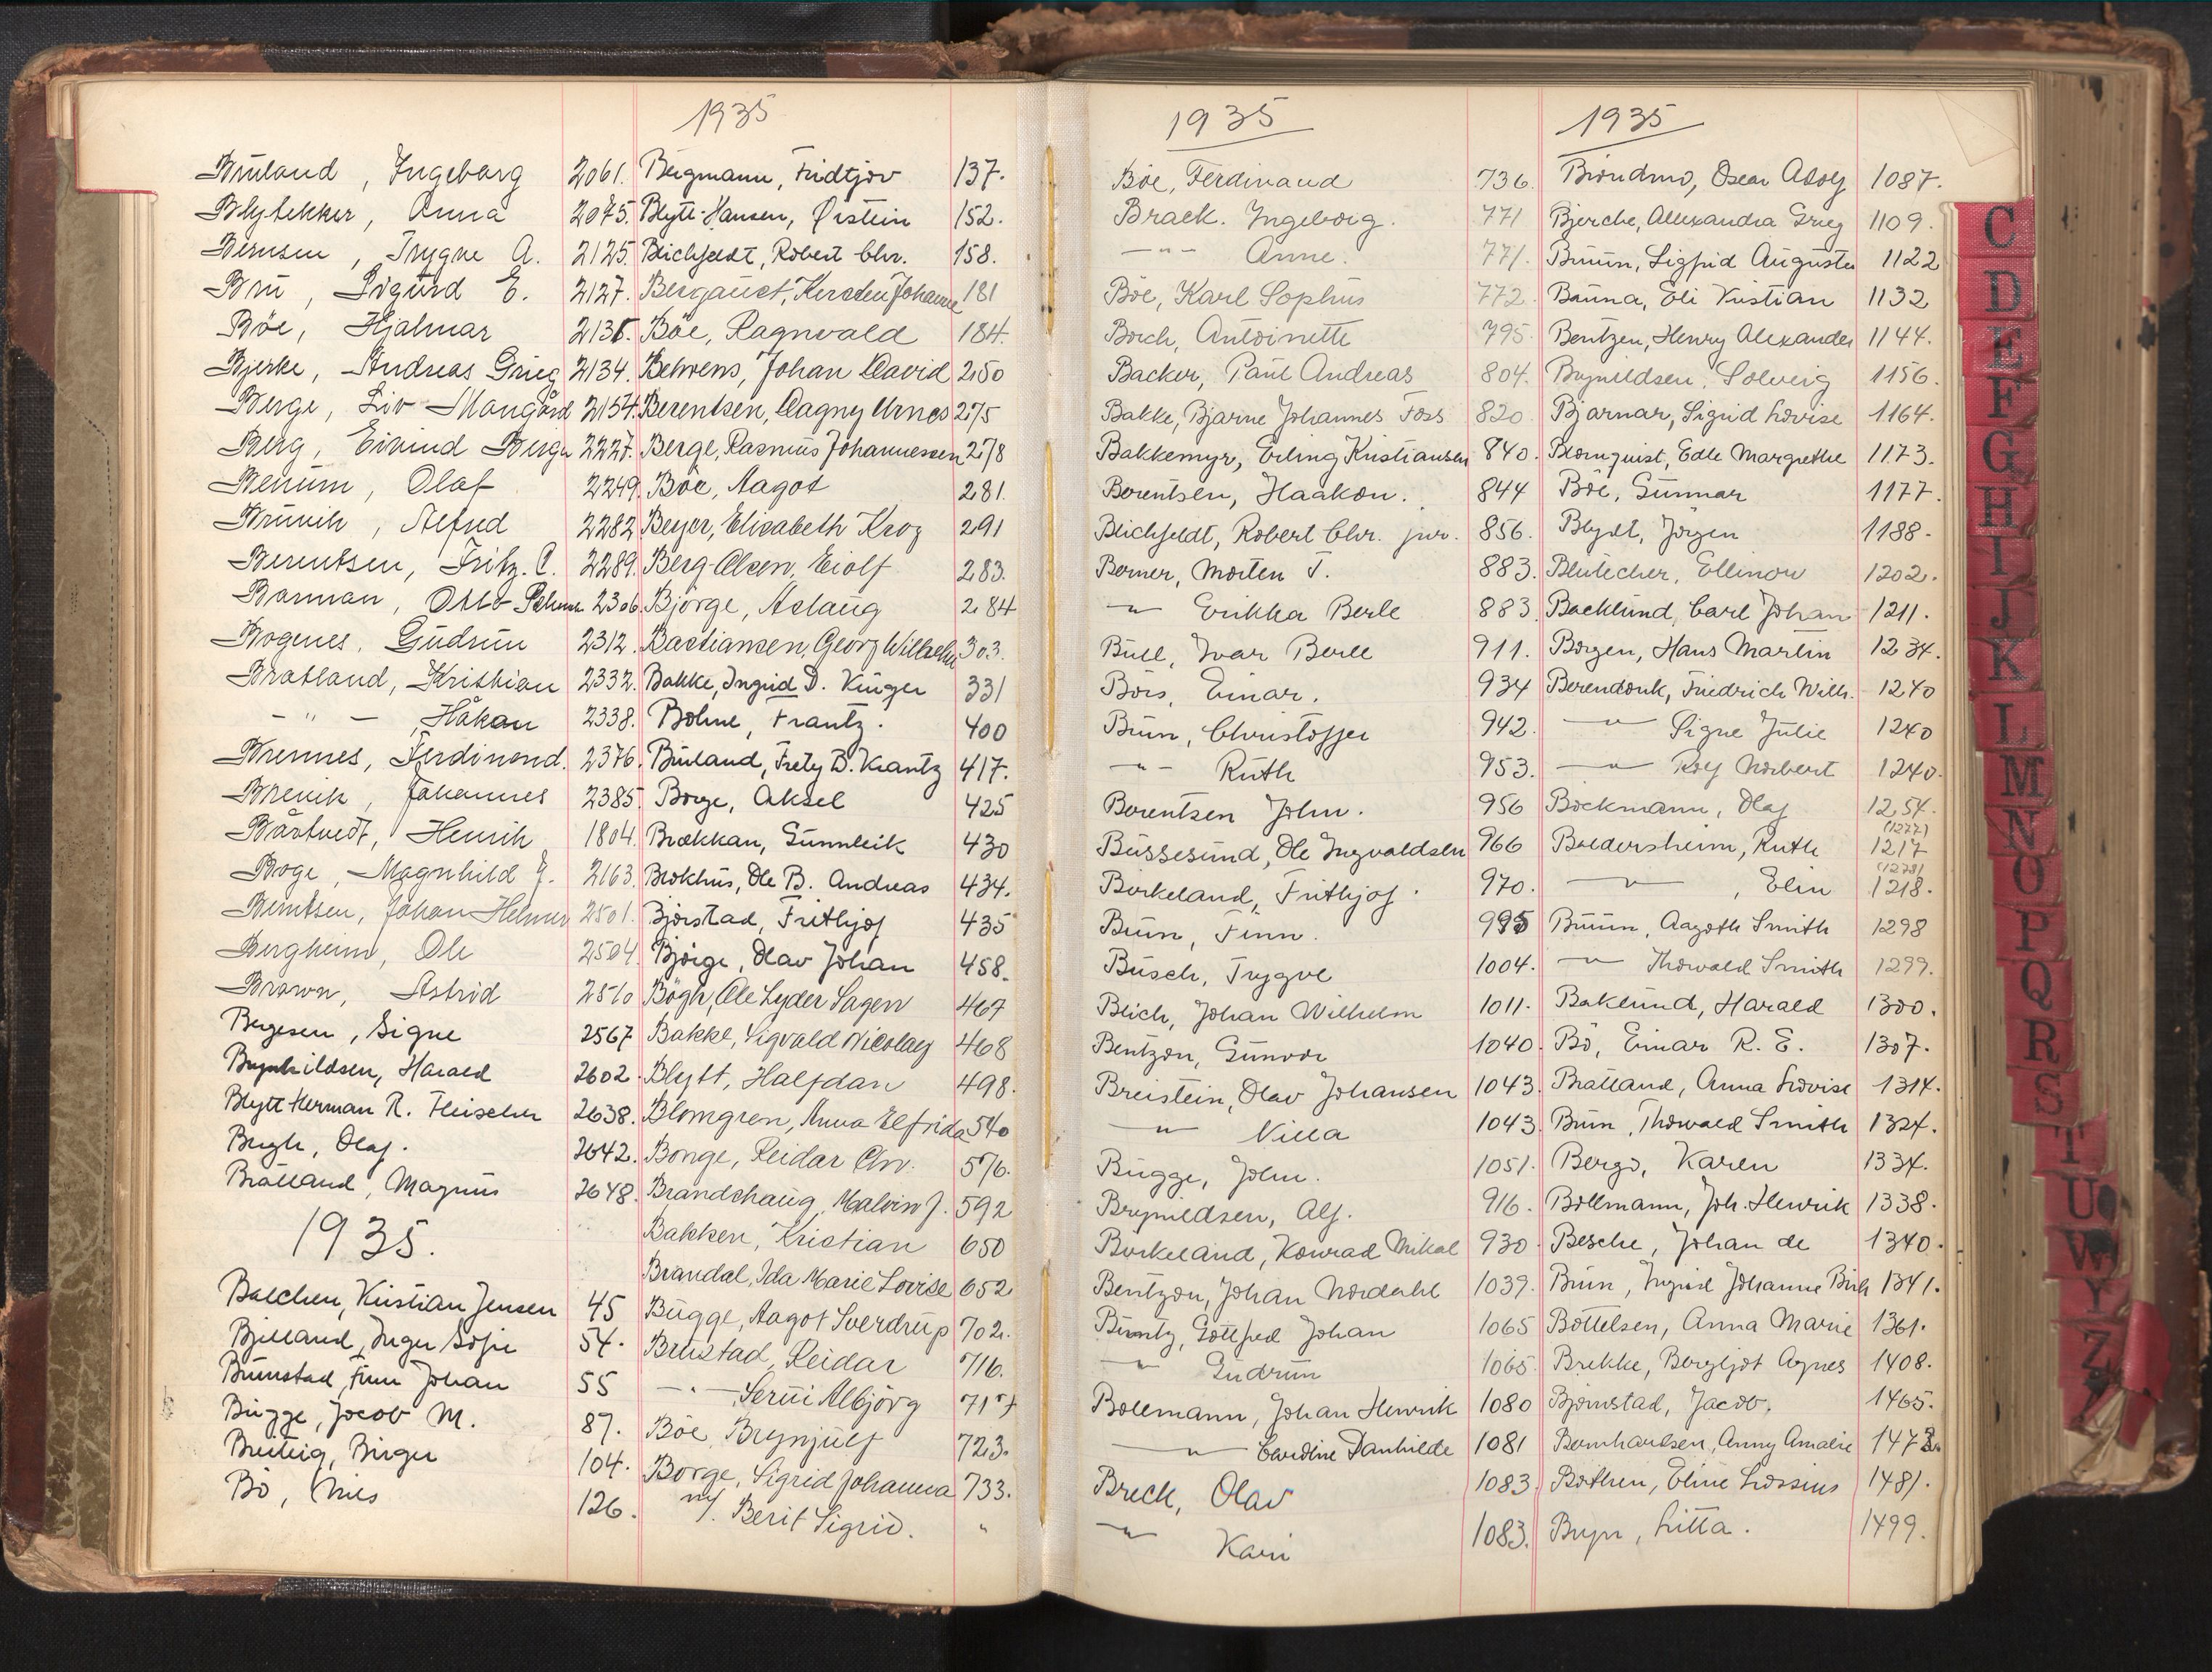 Bruland, Ingeborg 2061.
Blytekker, Anna 2075.
Bernsen, Trygve A. 2125.
Bru, Sigurd E. 2127.
Böe, Hjalmar
Bjerke, Andreas Grieg 2134.
Berge, Liv Mangård 2154.
Berg, Eivind 2227.
Olaf 2249.
Alfred 2282
Berentsen, Fritz. C. 2289.
Barman, Otto 2306.
Bogenes, Gudrun 2312.
Bratland, Kristian 2332.
- " - , Håkan 2338.
Brennes, Ferdinand. 2376.
Brevik, Johannes 2385.
Båstvedt, Henrik 1804.
Boge, Magnhild J. 2163.
Berntsen, Johan Helmer 2501.
Bergheim, Ole 2504.
Brown, Astrid 2510
Bergesen, Signe 2567
Brynhildsen, Harald 2602.
Blytt Herman R. Fleischer 2638.
Bugh, Olaf. 2642.
Brålland, Magnus 2648.
1935.
Balchen, Kristian Jensen 45
Bjelland, Inger Sofie 54.
Brunstad, Finn Johan 55
Bugge, Jacob M. 87.
Breiteig, Birger 104.
Bö, Nils 126.
1935
Bergmann, Fridtjov 137.
Blytt-Hansen, Øistein 152.
Blichfeldt, Robert Chr. 158.
Bergquist, Kersten Johanne 181
Böe, Ragnvald 184.
Behrens, Johan David 250
Berentsen, Dagny Urnes 275
Berge, Rasmus Johannessen 278
Böe, Aagot 281.
Beyer, Elisabeth Krog 291
Berg-Olsen, Eiolf 283.
Björge, Aslaug 284
Bastiansen, Georg Wilhelm 303.
Bakke, Ingrid D. Krüger 331
Bohne, Frantz. 400
Bruland, Frety B. Krantz 417.
Borge, Aksel 425
Brækkan, Gunnleik 430
Brokhus, Ole B. Andreas 434.
Bjørstad, Frithjof 435
Bjørge, Olav Johan 458.
Bögh, Ole Lyder Sagen 467
Bakke, Sigvald Nicolay 468
Blytt, Halfdan 498.
Blomgren, Anna Elfrida 540
Bonge, Reidar Chr. 576.
Brandshaug, Malvin J. 592
Bakken, Kristian 650
Brandal, Ida Marie Lovise 652
Bugge, Aagot Sverdrup 702.
Brustad, Reidar 716.
- " - , Serui Albjörg 717
Böe, Brynjulf 723.
Borge, Sigrid Johanna 733.
m/. Berit Sigrid. "
1935
Böe, Ferdinand 736.
Braek. Ingeborg. 771
- " - Anne. 771.
Böe, Karl Sophus 772.
Borch, Antoinette 795.
Backer, Paul Andreas 804.
Bakke, Bjarne Johannes Foss 820.
Bakkemyr, Erling Kristiansen 840.
Berentsen, Haakon. 844
Blichfeldt, Robert Chr. jur. 856.
Borner, Morten T. 883.
" Erikka Berle 883.
Bull, Ivar Berle 911.
Börs, Einar. 934
Bruun, Christoffer 942.
" Ruth 953.
Berentsen John. 956
Bussesund, Ole Ingvaldsen 966
Birkeland, Frithjof. 970.
Bruun, Finn. 995
Busch, Trygve 1004.
Blich, Johan Wilhelm 1011.
Bentzon, Gunvor 1040.
Breistein, Olav Johansen 1043.
" Villa 1043.
Bugge, John. 1051.
Brynildsen, Alf. 916.
Birkeland, Konrad Mikal 930.
Bentzon, Johan Nordahl 1039.
Buntz, Gottfred Johan 1065
" Gudrun 1065.
Bollmann, Johan Henrik 1080
" Caroline Danhilde 1081
Breck, Olav 1083.
" Kari 1083.
1935
Oscar Adolf 1087.
Bjerche, Allexandra Grieg 1109.
Bruun, Sigfrid Augusta 1122
Banna, Eli Kristian 1132
Bentzen, Henry Alexander 1144.
Brynildsen, Solveig 1156.
Bjarnar, Sigrid Lovise 1164.
Blomquist, Edle Margrethe 1173.
Böe, Gunnar 1177.
Blydt, Jörgen 1188.
Blütecher, Ellinor 1202.
Backlund, Carl Johan 1211.
Borgen, Hans Martin 1234.
Berendonk, Friedrich Wilh. 1240
" Signe Julie 1240
" Rolf Norbert 1240.
Böckmann, Olaf 1254.
Baldersheim, Ruth (1277) 1217
" , Elin (1278) 1218.
Bruun, Aagoth Smith 1298
" Thorvald Smith 1299.
Baklund, Harald 1300.
Bö, Einar R. E. 1307.
Brålland, Anna Lovise 1314.
Bruun, Thorvald Smith 1324.
Bergo, Karen 1334.
Bollmann, Joh. Henrik 1338.
Besche, Johan de 1340.
Bruun, Ingrid Johanne Birk 1341.
Bottelsen, Anna Marie 1361.
Brekke, Bergljot Agnes 1408.
Bjørnstad, Jacob. 1465.
Bernhardsen, Anny Amalie 1473.
Bothen, Eline Lossius 1481.
Bryn, Litta. 1499.
C
D
E
F
G
H
I
J
K
L
M
N
O
P
Q
R
S
T
U
W
Y
Z